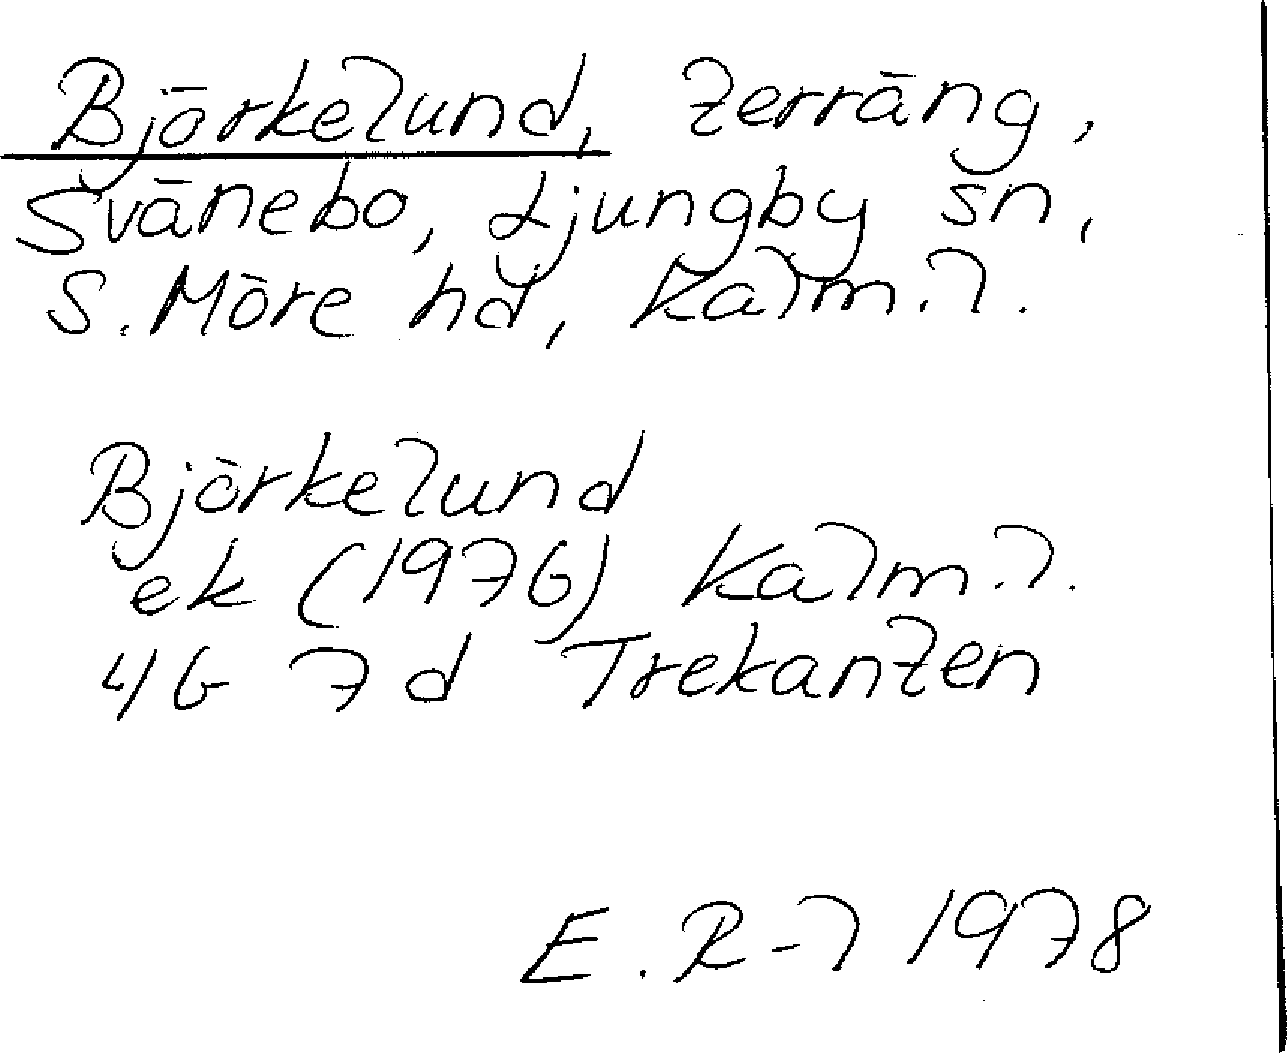 Björkelund, terräng,
Svänebo, Ljungby sn,
S. Möre hd, Kalm. l.
Björkelund
ek (1976) Kalm. l.
4G 7d Trekanten
E. R-l 1978